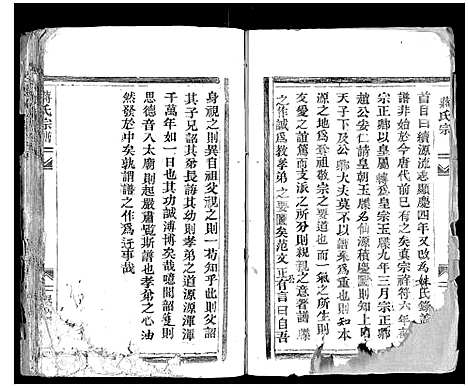 蔣氏宗
首曰續源流志顯慶四年又改為姓氏錄
譜非始於今唐代前已有之矣真宗祥符六年
宗正卿以皇屬籍為皇宗玉牒九年三月宗正卿
趙公安仁請皇朝玉牒名仙源積慶圖則知本
天子下及公卿大夫莫不以譜系為重也至於明本
源之地為尊祖敬宗之要道也而一氣之所生則
友愛之誼宜篤支派之所分則親親之意者譜牒
之作誠為教孝弟之要圖矣范文正公有言曰自吾
身視之則異自祖父視之則一苟知此則父詔
其子兄詔其弟長詔其幼則孝弟之道源源渾渾
千萬年如一日也其功誠溥博矣哉噫聞韶
思德音入太廟則起嚴肅覩斯譜也孝弟之心油
然發於中矣孰謂譜之作為迂事哉
蔣氏宗譜